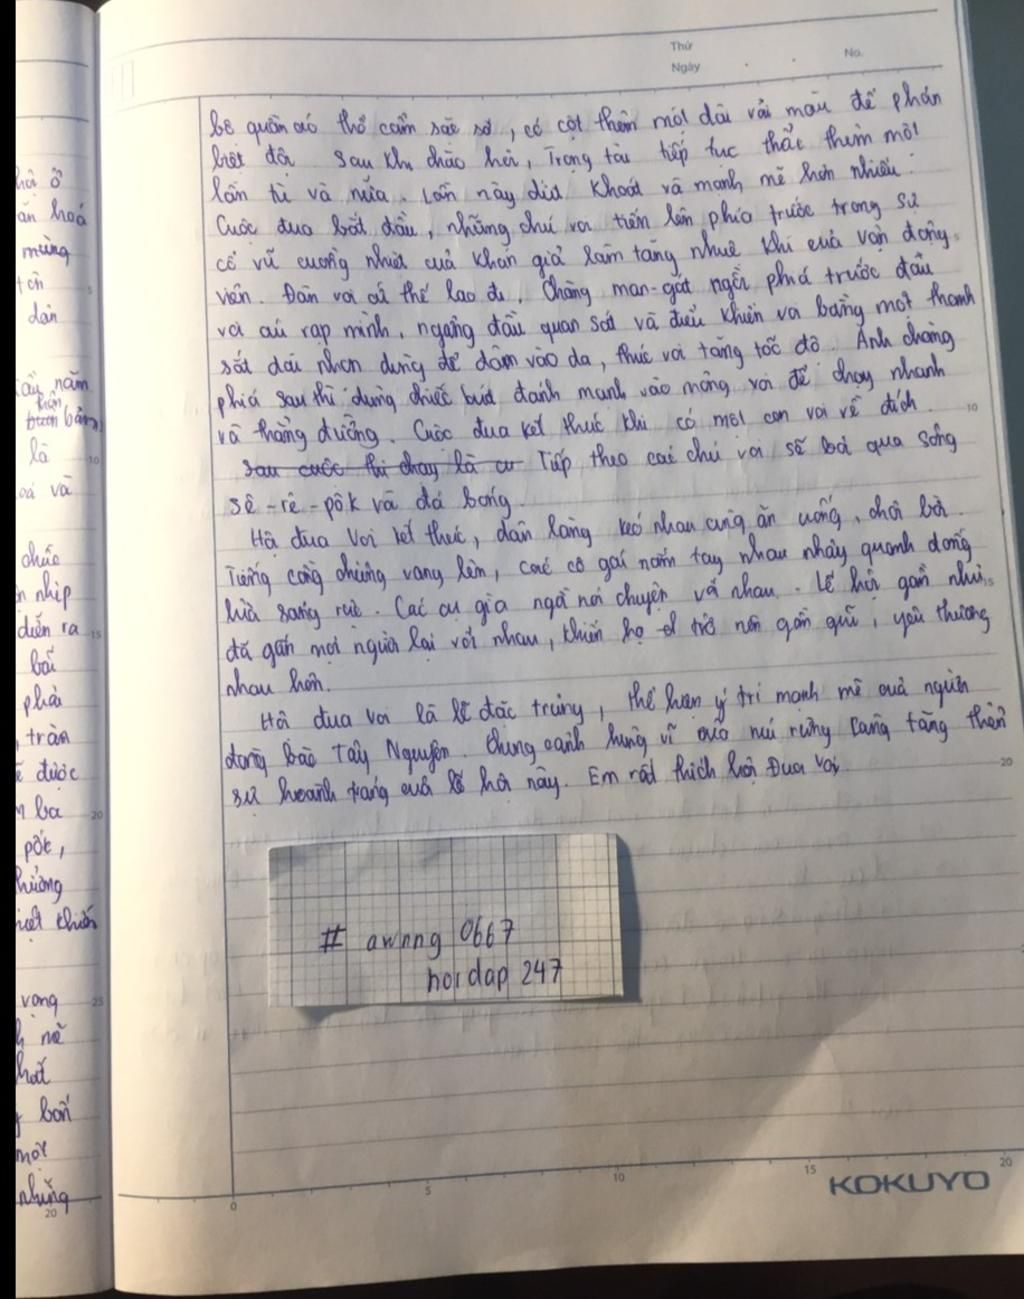 hội ở
ăn hoá
mừng
tch
dân
ầu năm
hân
buôn bản
là
oá và
chức
n nhịp
diễn ra
bãi
phải
, tràn
ẽ được
m ba
pốk,
hưởng
iệt chiến
vong
h mẽ
hất
bốn
một
những
Thứ
Ngày
No.
bộ quần áo thổ cẩm sặc sỡ, có cột thêm một dải vải màu để phân
biệt đội. Sau khi chào hỏi, Trọng tài tiếp tục thắc thêm một
lần tù và nữa. Lần này dứt khoát và mạnh mẽ hơn nhiều.
Cuộc đua bắt đầu, những chú voi tiến lên phía trước trong sự
cổ vũ cuồng nhiệt của khán giả làm tăng nhuệ khí của vận động
viên. Đàn voi cứ thế lao đi. Chàng man-gát ngồi phiá trước đầu
voi cúi rạp mình, ngẩng đầu quan sát và điều khiển voi bằng một thanh
sắt dài nhọn dùng để đâm vào da, thúc voi tăng tốc độ. Anh chàng
phiá sau thì dùng chiếc búa đánh mạnh vào mông voi để chạy nhanh
và thẳng đường. Cuộc đua kết thúc khi có một con voi về đích.
sau cuộc thi chạy là cu Tiếp theo các chú voi sẽ bơi qua sông
sê-rê-pôk và đá bóng.
Hội đua voi kết thúc, dân làng kéo nhau cùng ăn uống, chơi bời.
Tiếng cồng chiêng vang lên, các cô gái nắm tay nhau nhảy quanh đống
lửa sáng rực. Các cụ già ngồi nói chuyện với nhau. Lễ hội gần như
đã gắn mọi người lại với nhau, khiến họ trở nên gần gũi, yêu thương
nhau hơn.
Hội đua voi là lễ đặc trưng, thể hiện ý trí mạnh mẽ của người
đồng bào Tây Nguyên. Khung cảnh hùng vĩ của núi rừng càng tăng thêm
sự hoành tráng của lễ hội này. Em rất thích hội Đua voi.
# awnng 0667
hoidap 247
5
10
15
20
25
20
10
15
20
0
5
10
15
20
KOKUYO